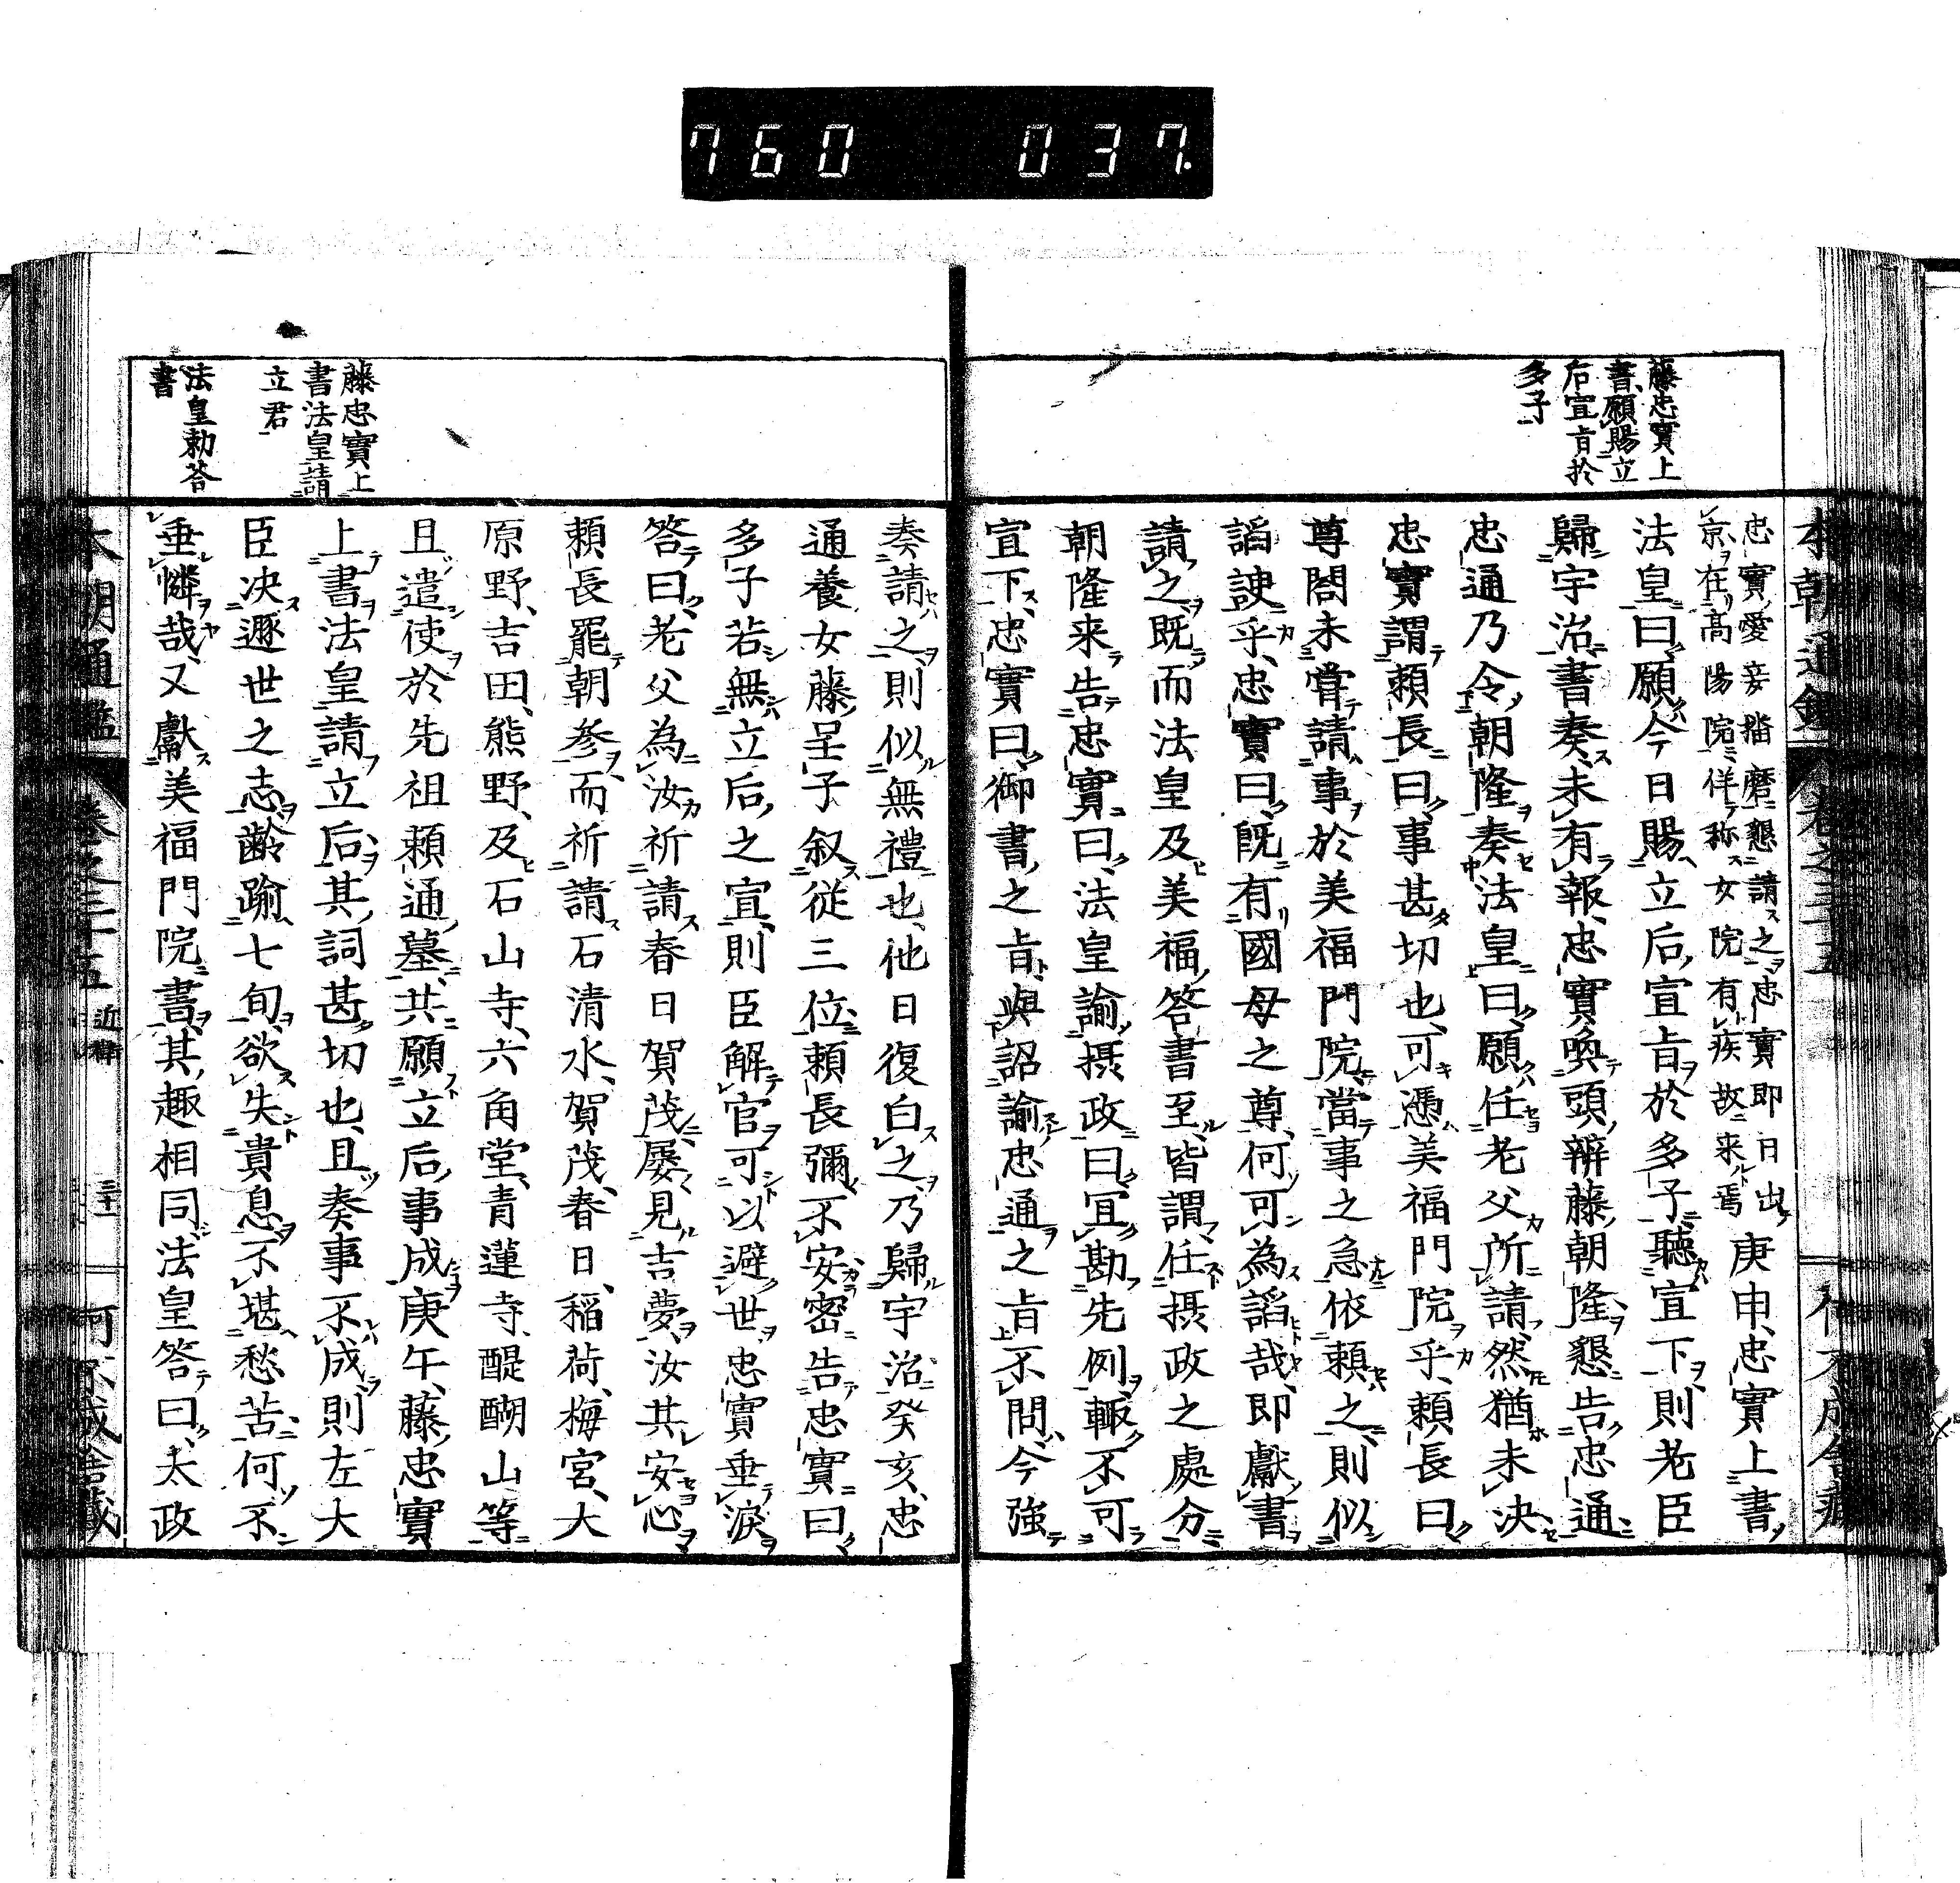 760 037
藤忠實上
書願賜立
后宣旨於
多子
忠實愛妾播磨懇請之忠實即日出
京在高陽院佯称女院有疾故来焉
庚申忠實上書
法皇曰願今日賜立后宣旨於多子聴宣下則老臣
歸宇治書奏未有報忠實喚頭辨藤朝隆懇告忠通
忠通乃令朝隆奏法皇曰願任老父所請然猶未决
忠實謂頼長曰事甚切也可憑美福門院乎頼長曰
尊閤未嘗請事於美福門院當事之急依頼之則似
謟諛乎忠實曰既有國母之尊何可為謟哉即獻書
請之既而法皇及美福答書至皆謂任摂政之處分
朝隆来告忠實曰法皇諭摂政曰冝勘先例輙不可
宣下忠實曰御書之旨與詔諭忠通之旨不問今強
奏請之則似無禮也他日復白之乃歸宇治癸亥忠
通養女藤呈子叙従三位頼長彌不安密告忠實曰
多子若無立后之宣則臣解官可以避世忠實垂淚
答曰老父為汝祈請春日賀茂屡見吉夢汝其安心
頼長罷朝参而祈請石清水賀茂春日稲荷梅宮大
原野吉田熊野及石山寺六角堂青蓮寺醍醐山等
且遣使於先祖頼通墓共願立后事成庚午藤忠實
上書法皇請立后其詞甚切也且奏事不成則左大
臣决遯世之志齢踰七旬欲失貴息不堪愁苦何不
垂憐哉又獻美福門院書其趣相同法皇答曰太政
藤忠實上
書法皇請
立君
法皇勅答
書
本朝通鑑 巻之三十五 近衛 三十一